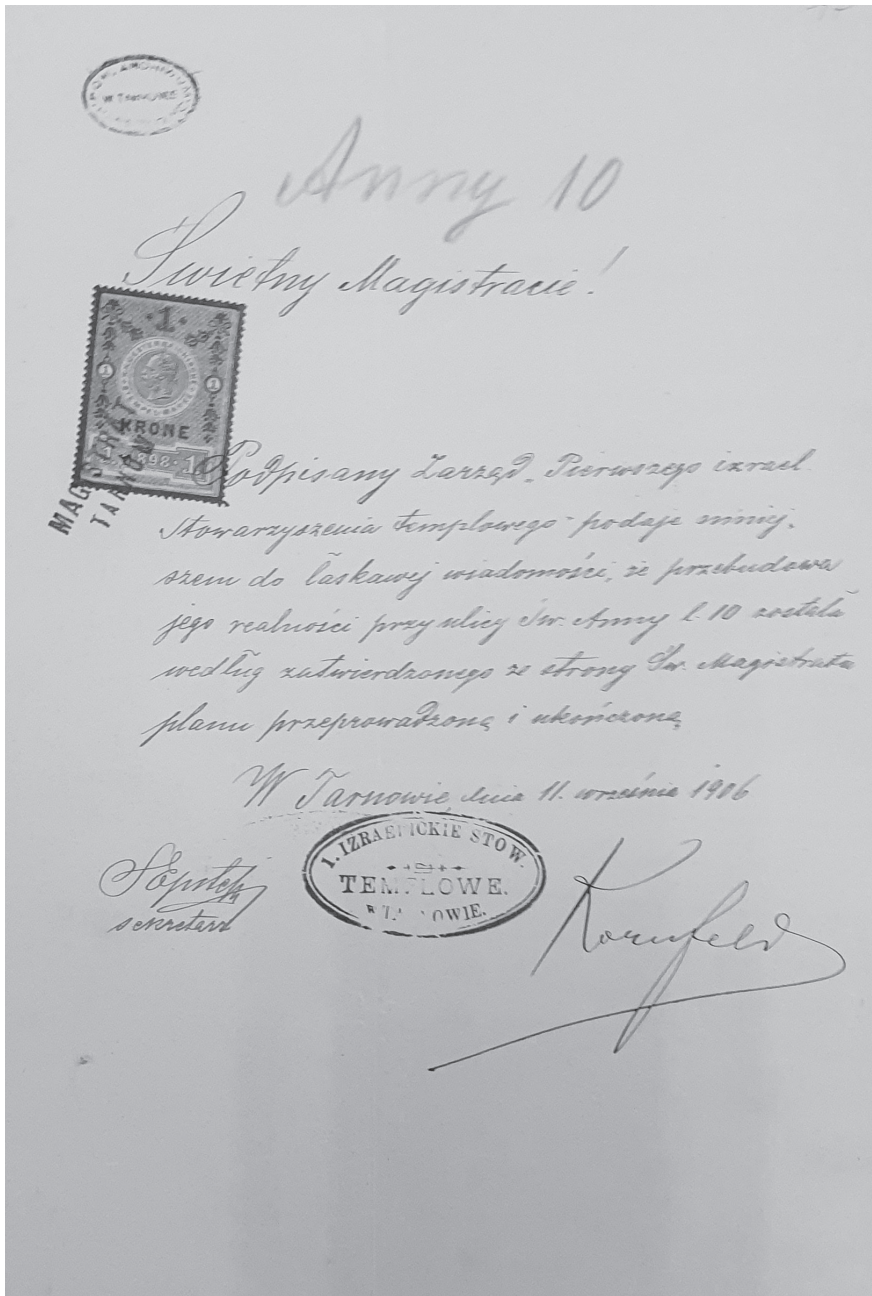 W TARNOWIE
Anny 10
Świetny Magistracie!
1
1 1
KRONE
1 1898 1
MAGISTRAT
TARNÓW
Podpisany Zarząd „Pierwszego izrael.
stowarzyszenia templowego" podaje niniej-
szem do łaskawej wiadomości, że przebudowa
jego realności przy ulicy Św. Anny l. 10 została
według zatwierdzonego ze strony Św. Magistratu
planu przeprowadzoną i ukończoną.
W Tarnowie, dnia 11. września 1906
1. IZRAELICKIE STOW.
TEMPLOWE.
W TARNOWIE.
sekretarz
Kornfeld